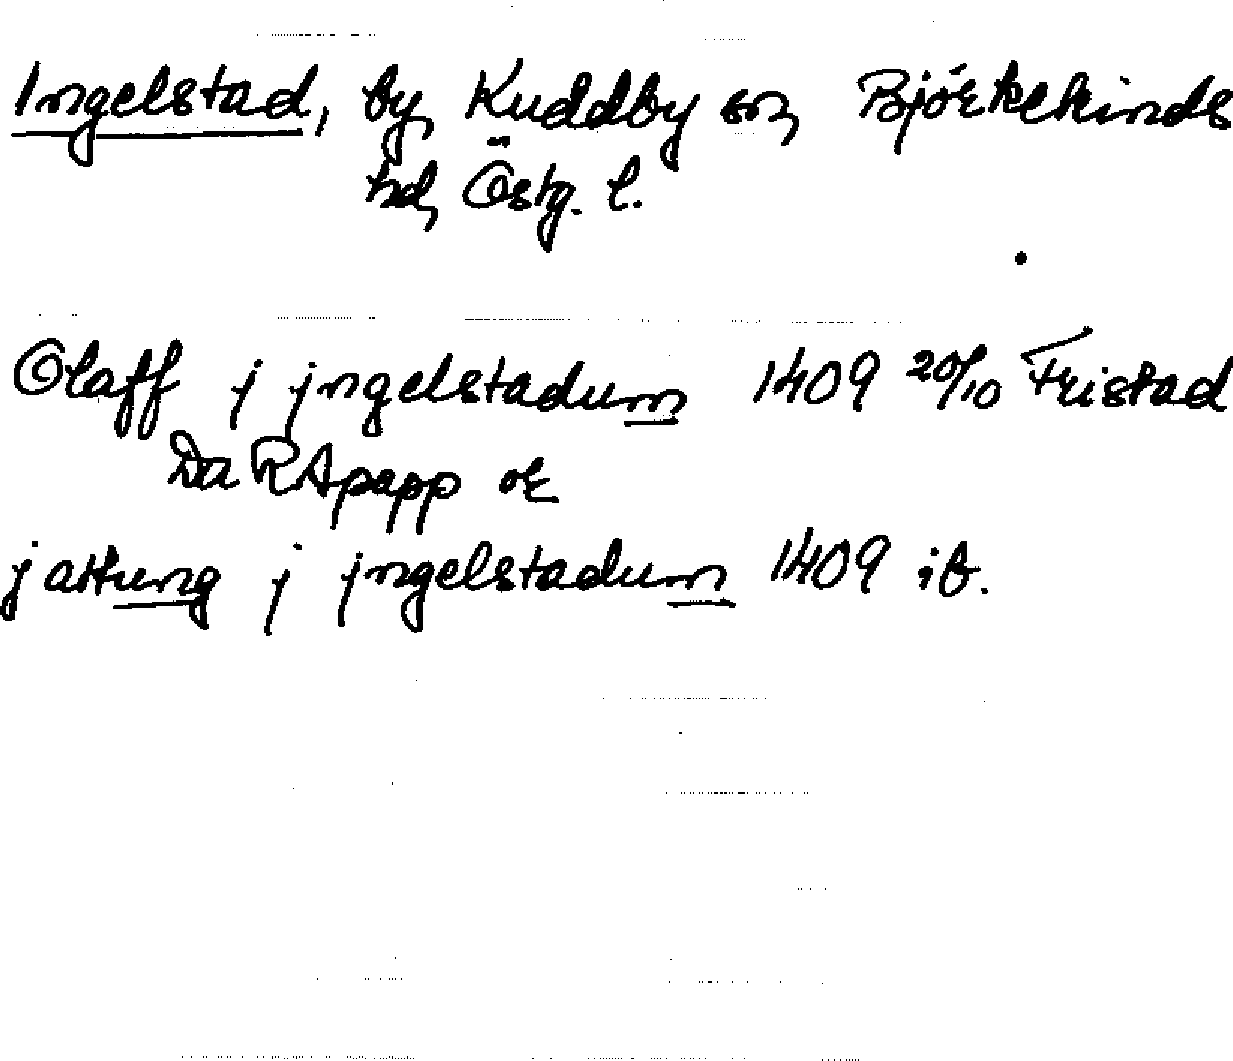 Ingelstad, by, Kuddby sn, Björkekinds
hd, Östg. l.
Olaff j jngelstadum 1409 20/10 Fristad
Da RApapp or
jattung j jngelstadum 1409 ib.